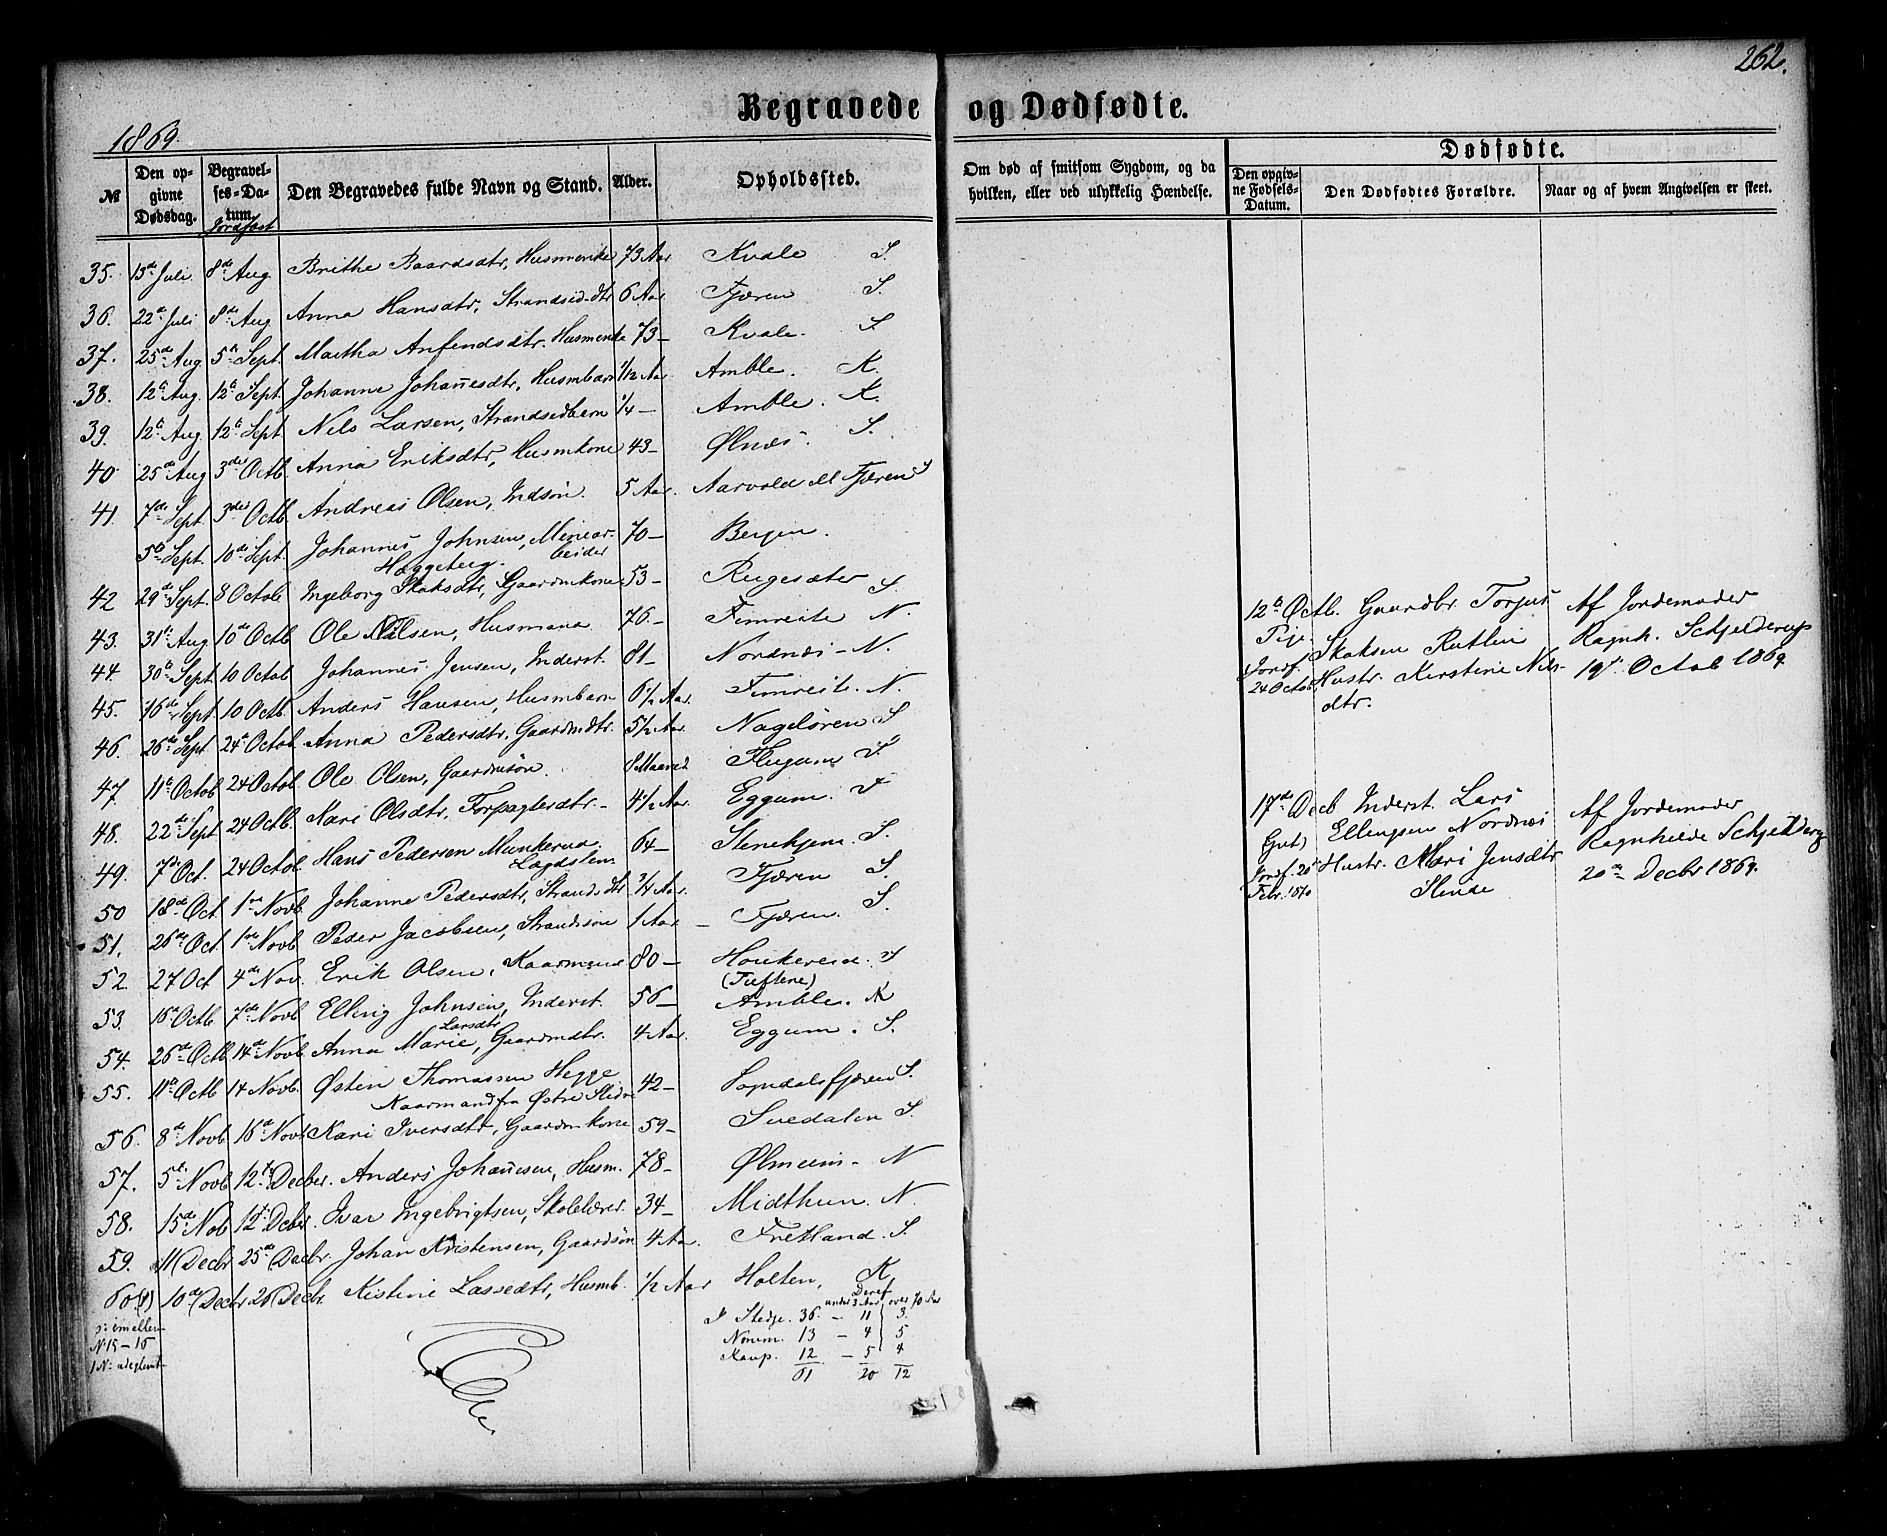 262.
Begravede og Dødfødte.
1869.
№
Den opgivne Dødsdag.
Begravelses-Datum.
Jordfast
Den Begravedes fulde Navn og Stand.
Alder.
Opholdssted.
Om død af smitsom Sygdom, og da hvilken, eller ved ulykkelig Hændelse.
Dødfødte.
Den opgivne Fødsels-Datum.
Den Dødfødtes Forældre.
Naar og af hvem Angivelsen er skeet.
35. 13de Juli 8de Aug Brithe Baardsdtr, Husmenke 73 Aar Kvale S.
36. 22de Juli 8de Aug Anna Hansdtr, Strandsid.dtr 6 Aar Fjæren S.
37. 25de Aug 5te Sept Martha Anfendsdtr. Husmenke 73 — Kvale. S.
38. 12te Aug. 12te Sept Johanne Johannesdtr, Husmbarn 1/12 Aar Amble. K.
39. 12te Aug 12te Sept Nils Larsen, Strandsedbarn 1/4 — Amble. K.
40 25de Aug 3die Octb. Anna Eriksdtr, Husmkone 43 — Ølnæs. S.
41. 7de Sept 3die Octb. Andreas Olsen, Indsøn. 5 Aar. Aarvold ell Fjæren S
5te Sept. 10de Sept. Johannes Johnsen, Minearbeider 70 — Bergen.
Haggeberg.
42 29de Sept. 8 Octob Ingeborg Skaksdtr, Gaardmkone 53 — Rugesæter S.
43. 31te Aug 10de Octb Ole Nilsen, Husmand 76. — Fimreite N.
44. 30te Sept 10 Octob Johannes Jensen, Inderst. 81 — Nordnæs — N.
45. 16de Sept. 10 Octb Anders Hansen, Husmbarn 6 1/2 Aar. Fimreite. N.
46. 26de Sept 24de Octob Anna Pedersdtr, Gaardmdtr. 5 1/2 Aar. Nageløren S
47 11te Octob 24 Octob Ole Olsen, Gaardmsøn. 8 Maaned Flugum S
48. 22de Sept 24 Octb. Kari Olsdtr. Forpagterdtr — 4 1/2 Aar. Eggum. S
49. 7de Oct. 24 Octob Hans Pedersen Munkerud 64 — Stenehjem S.
Lægdslem
50 18de Oct 1ste Novb. Johanne Pedersdtr, Strands.dtr 3/4 Aar. Fjæren S.
51. 26de Oct 1ste Novb Peder Jacobsen, Strandsøn 1 Aar — Fjæren. S.
52 27 Oct 4de Nov. Erik Olsen, Kaarmand 80 — Haukereid. S
(Tuftene)
53. 16de Octb 7de Novb Elling Johnsen, Inderst. 56 — Amble. K
54. 26de Octb 14de Novb. Anna Marie Larsdtr, Gaardmdtr. 4 Aar. Eggum. S.
55. 11te Octb 14 Novb. Østen Thomassen Hegge 42 — Sogndalsfjæren S.
Kaarmand fra Østre Slidre
56. 8de Novb 16de Novb Kari Iversdtr, Gaardmkone 59 — Svedalen S.
57. 5te Novb 12te Decber. Anders Johannesen, Husm. 78 — Ølmeim — N
58. 15de Nob 12te Dcber. Ivar Ingebrigtsen, Skolelærer. 34 — Midthun. N.
59. 11 Decbr 25de Decbr. Johan Kristensen, Gaardsøn 4 Aar. Fretland. S.
60 (1) 10de Decbr 26 Decbr. Kistine Lassedtr, Husmb. 1/2 Aar Holten, K.
ɔ: imellem
N 15 — 16
1 N: udeglemt
Deraf
under 3 Aar over 70 Aar
I Stedje. 36. — 11 3.
Norum. 13 — 4 5
Kaup. 12 — 5 4
61 20 12
12te Octb. Gaardbr. Torjus Af Jordemoder
Pije. Skaksen Rutlin Ragnh. Schjelderup
Jordf. Hustr. Kirstine Nils- 19de Octob 1869.
24 Octob. dtr.
17de Decb Inderst. Lars Af Jordemoder
Gut) Ellingsen Nordnæs Ragnhilde Schjelderup
Jordf. 20 Hustr. Mari Jensdtr 20de Decbr 1869.
Febr. 1870 Slinde